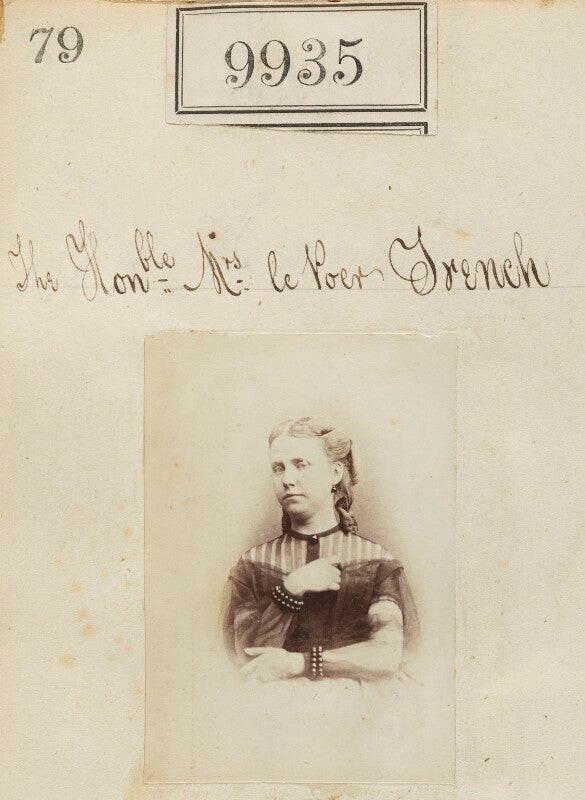 79
9935
The Honble Mrs le Poer Trench